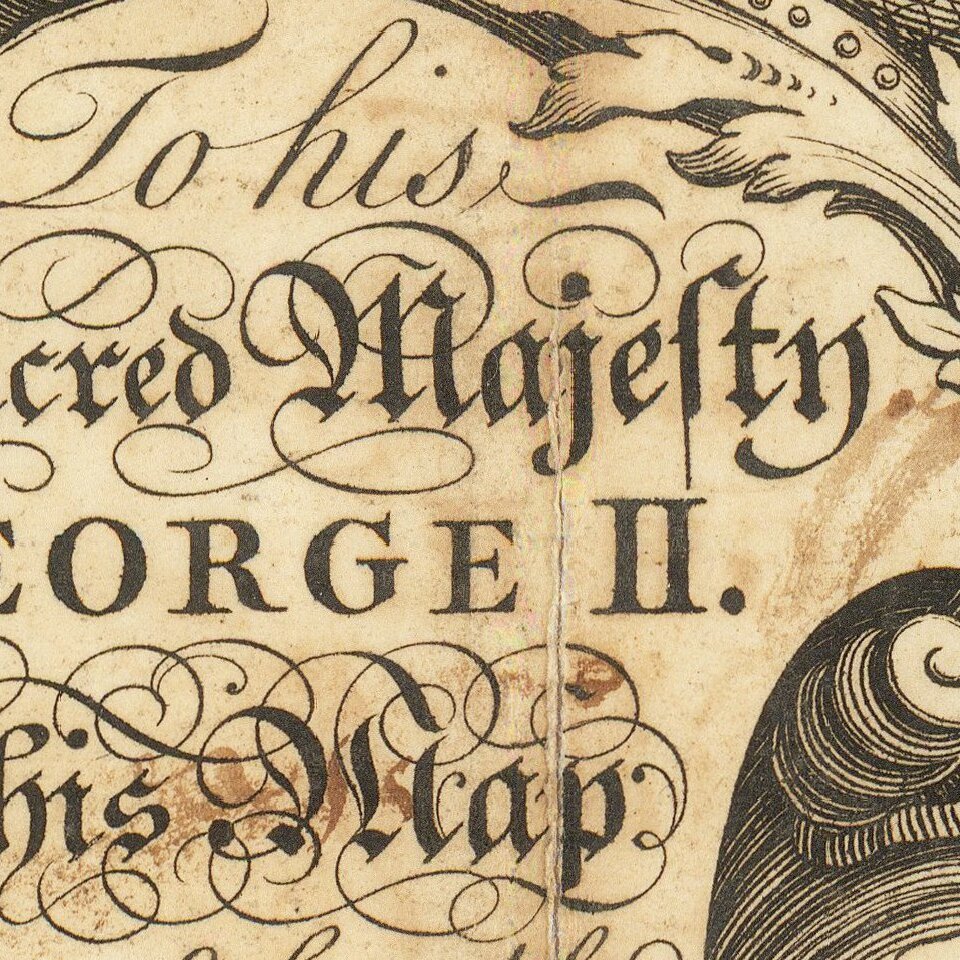 To his
acred Majeſty
EORGE II.
his Map.